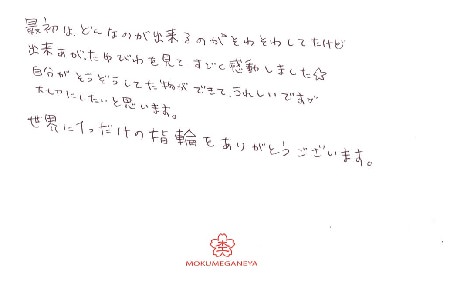 最初は、どんなのが出来るのかそわそわしてたけど
出来あがったゆびわを見てすごく感動しました☆
自分がそうぞうしてた物ができて、うれしいですが
大切にしたいと思います。
世界に1つだけの指輪をありがとうございます。
MOKUMEGANEYA